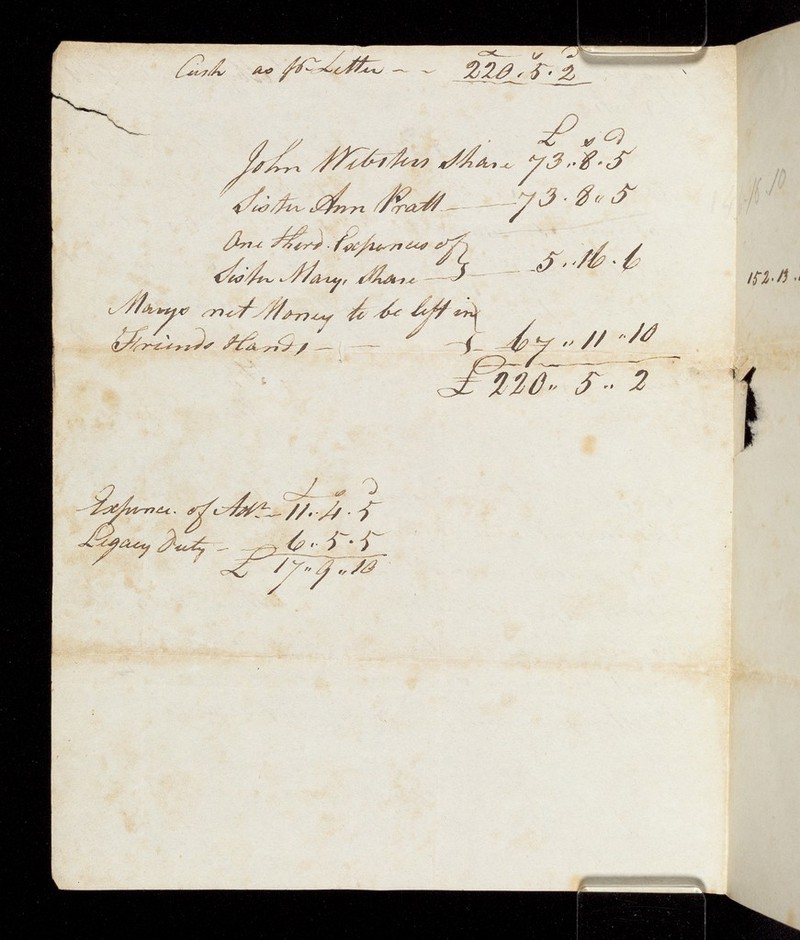 £ s d
Cash as pr Letter - - 220.5.2
£ s d
John Websters Share 73..8.5
Sister Ann Pratt 73.8..5
One third Expences of
Sister Mary, Share 5..16.6
Marys net Money to be left in
Friends Hands 67..11..10
£ 220..5..2
£ s d
Expence. of Adn 11..4.5
Legacy Duty - 6..5.5
£ 17..9..10
152.13.